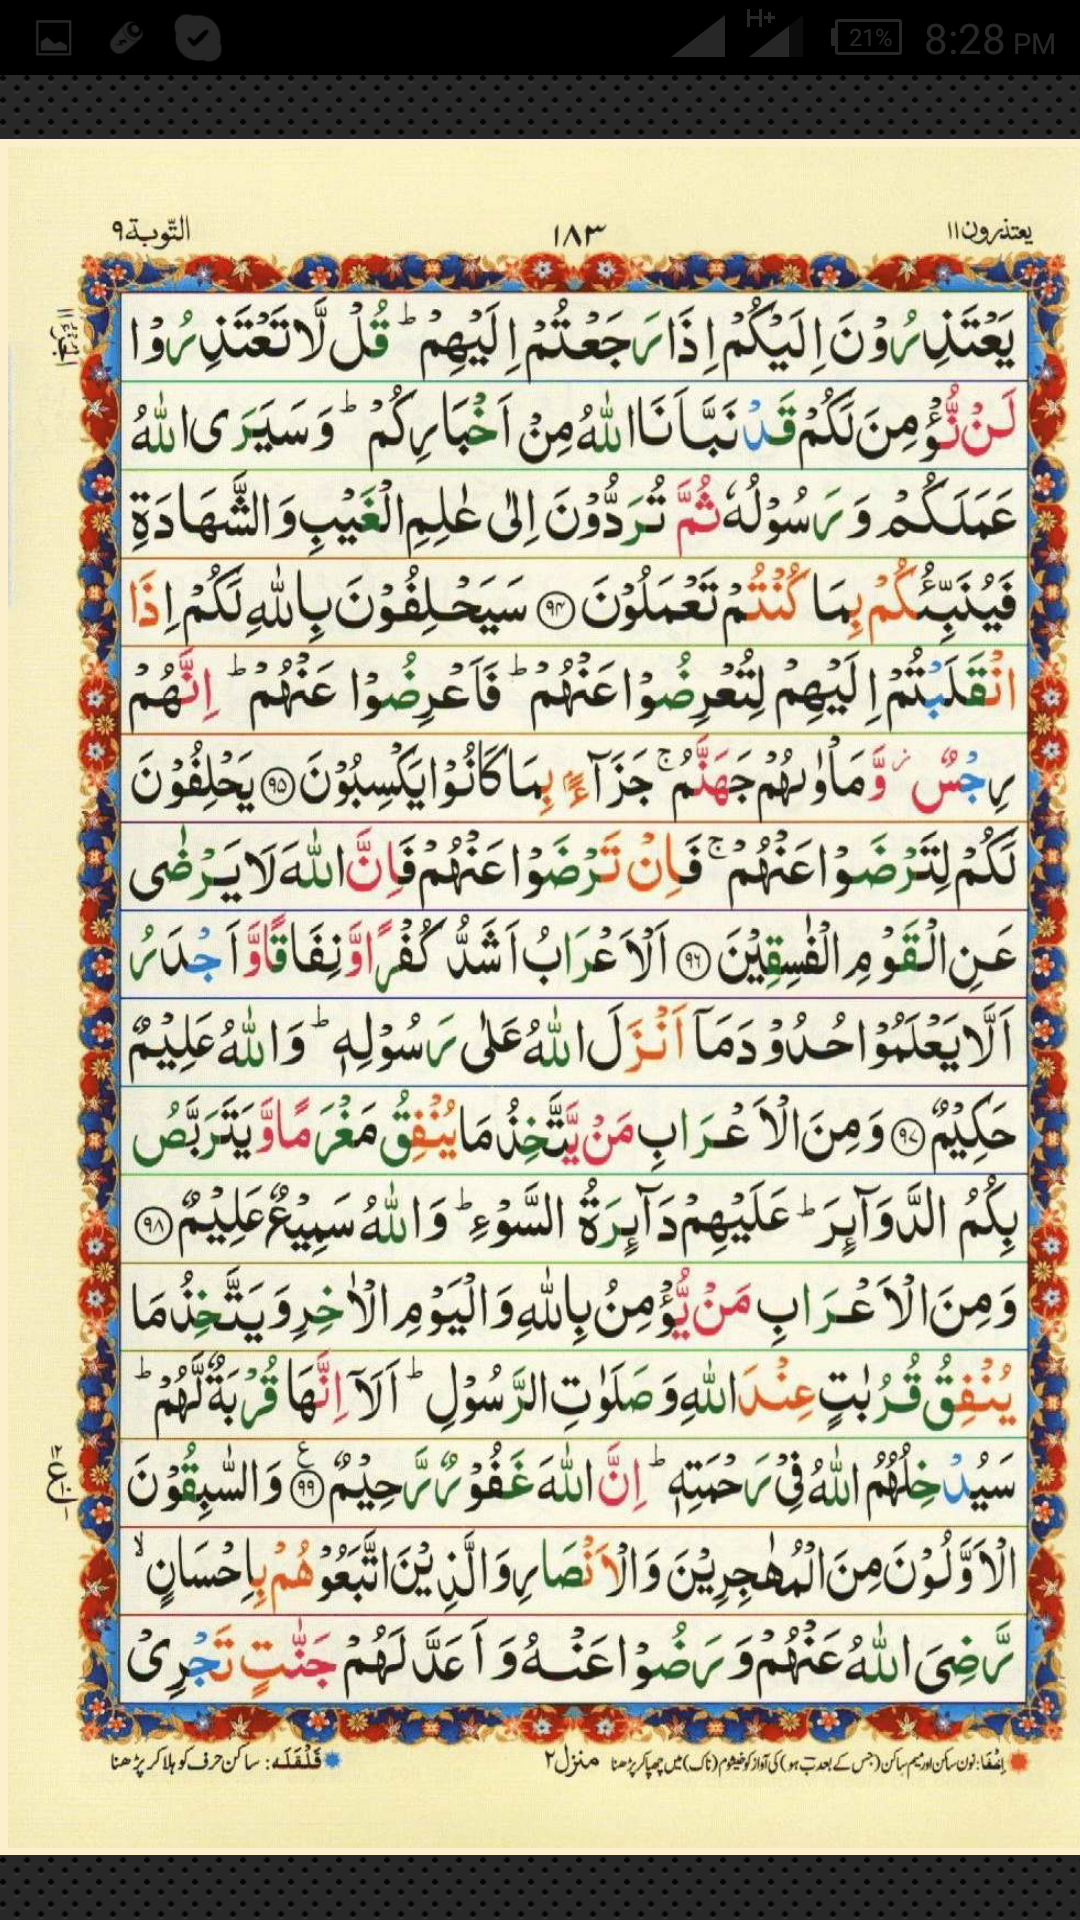 H+
21%
8:28 PM
يعتذرون ١١
١٨٣
التّوبة ٩
يَعْتَذِرُوْنَ اِلَيْكُمْ اِذَا رَجَعْتُمْ اِلَيْهِمْ ؕ قُلْ لَّا تَعْتَذِرُوْا
لَنْ نُّؤْمِنَ لَكُمْ قَدْ نَبَّاَنَا اللّٰهُ مِنْ اَخْبَارِكُمْ ؕ وَسَيَرَى اللّٰهُ
عَمَلَكُمْ وَرَسُوْلُهٗ ثُمَّ تُرَدُّوْنَ اِلٰى عٰلِمِ الْغَيْبِ وَالشَّهَادَةِ
فَيُنَبِّئُكُمْ بِمَا كُنْتُمْ تَعْمَلُوْنَ ﴿۹۴﴾ سَيَحْلِفُوْنَ بِاللّٰهِ لَكُمْ اِذَا
انْقَلَبْتُمْ اِلَيْهِمْ لِتُعْرِضُوْا عَنْهُمْ ؕ فَاَعْرِضُوْا عَنْهُمْ ؕ اِنَّهُمْ
رِجْسٌ ؗ وَّمَاْوٰىهُمْ جَهَنَّمُ ۚ جَزَآءًۢ بِمَا كَانُوْا يَكْسِبُوْنَ ﴿۹۵﴾ يَحْلِفُوْنَ
لَكُمْ لِتَرْضَوْا عَنْهُمْ ۚ فَاِنْ تَرْضَوْا عَنْهُمْ فَاِنَّ اللّٰهَ لَا يَرْضٰى
عَنِ الْقَوْمِ الْفٰسِقِيْنَ ﴿۹۶﴾ اَلْاَعْرَابُ اَشَدُّ كُفْرًا وَّنِفَاقًا وَّاَجْدَرُ
اَلَّا يَعْلَمُوْا حُدُوْدَ مَاۤ اَنْزَلَ اللّٰهُ عَلٰى رَسُوْلِهٖ ؕ وَاللّٰهُ عَلِيْمٌ
حَكِيْمٌ ﴿۹۷﴾ وَمِنَ الْاَعْرَابِ مَنْ يَّتَّخِذُ مَا يُنْفِقُ مَغْرَمًا وَّيَتَرَبَّصُ
بِكُمُ الدَّوَآئِرَ ؕ عَلَيْهِمْ دَآئِرَةُ السَّوْءِ ؕ وَاللّٰهُ سَمِيْعٌ عَلِيْمٌ ﴿۹۸﴾
وَمِنَ الْاَعْرَابِ مَنْ يُّؤْمِنُ بِاللّٰهِ وَالْيَوْمِ الْاٰخِرِ وَيَتَّخِذُ مَا
يُنْفِقُ قُرُبٰتٍ عِنْدَ اللّٰهِ وَصَلَوٰتِ الرَّسُوْلِ ؕ اَلَاۤ اِنَّهَا قُرْبَةٌ لَّهُمْ ؕ
سَيُدْخِلُهُمُ اللّٰهُ فِيْ رَحْمَتِهٖ ؕ اِنَّ اللّٰهَ غَفُوْرٌ رَّحِيْمٌ ﴿۹۹﴾ وَالسّٰبِقُوْنَ
الْاَوَّلُوْنَ مِنَ الْمُهٰجِرِيْنَ وَالْاَنْصَارِ وَالَّذِيْنَ اتَّبَعُوْهُمْ بِاِحْسَانٍ ۙ
رَّضِيَ اللّٰهُ عَنْهُمْ وَرَضُوْا عَنْهُ وَاَعَدَّ لَهُمْ جَنّٰتٍ تَجْرِيْ
اِخْفَا: نون ساکن اور میم ساکن (جس کے بعد ب ہو) کی آواز کو خیشوم (ناک) میں چھپا کر پڑھنا
منزل ۲
قَلْقَلَه: ساکن حرف کو ہلا کر پڑھنا